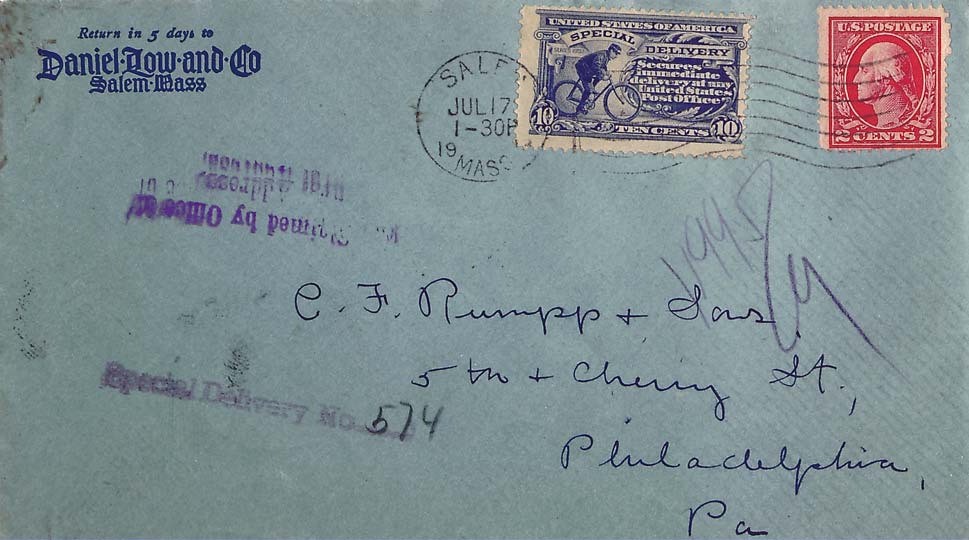 Return in 5 days to
Daniel·Low·and·Co
Salem·Mass
UNITED STATES OF AMERICA
SPECIAL DELIVERY
Secures
immediate
delivery at any
United States
Post Office
10 TEN CENTS 10
U.S. POSTAGE
2 CENTS 2
SALE
JUL 17
1-30P
19
MASS
Address
by Office
C. F. Rumpp + Sons
5th + Cherry St.,
Philadelphia,
Pa
Special Delivery No. 574